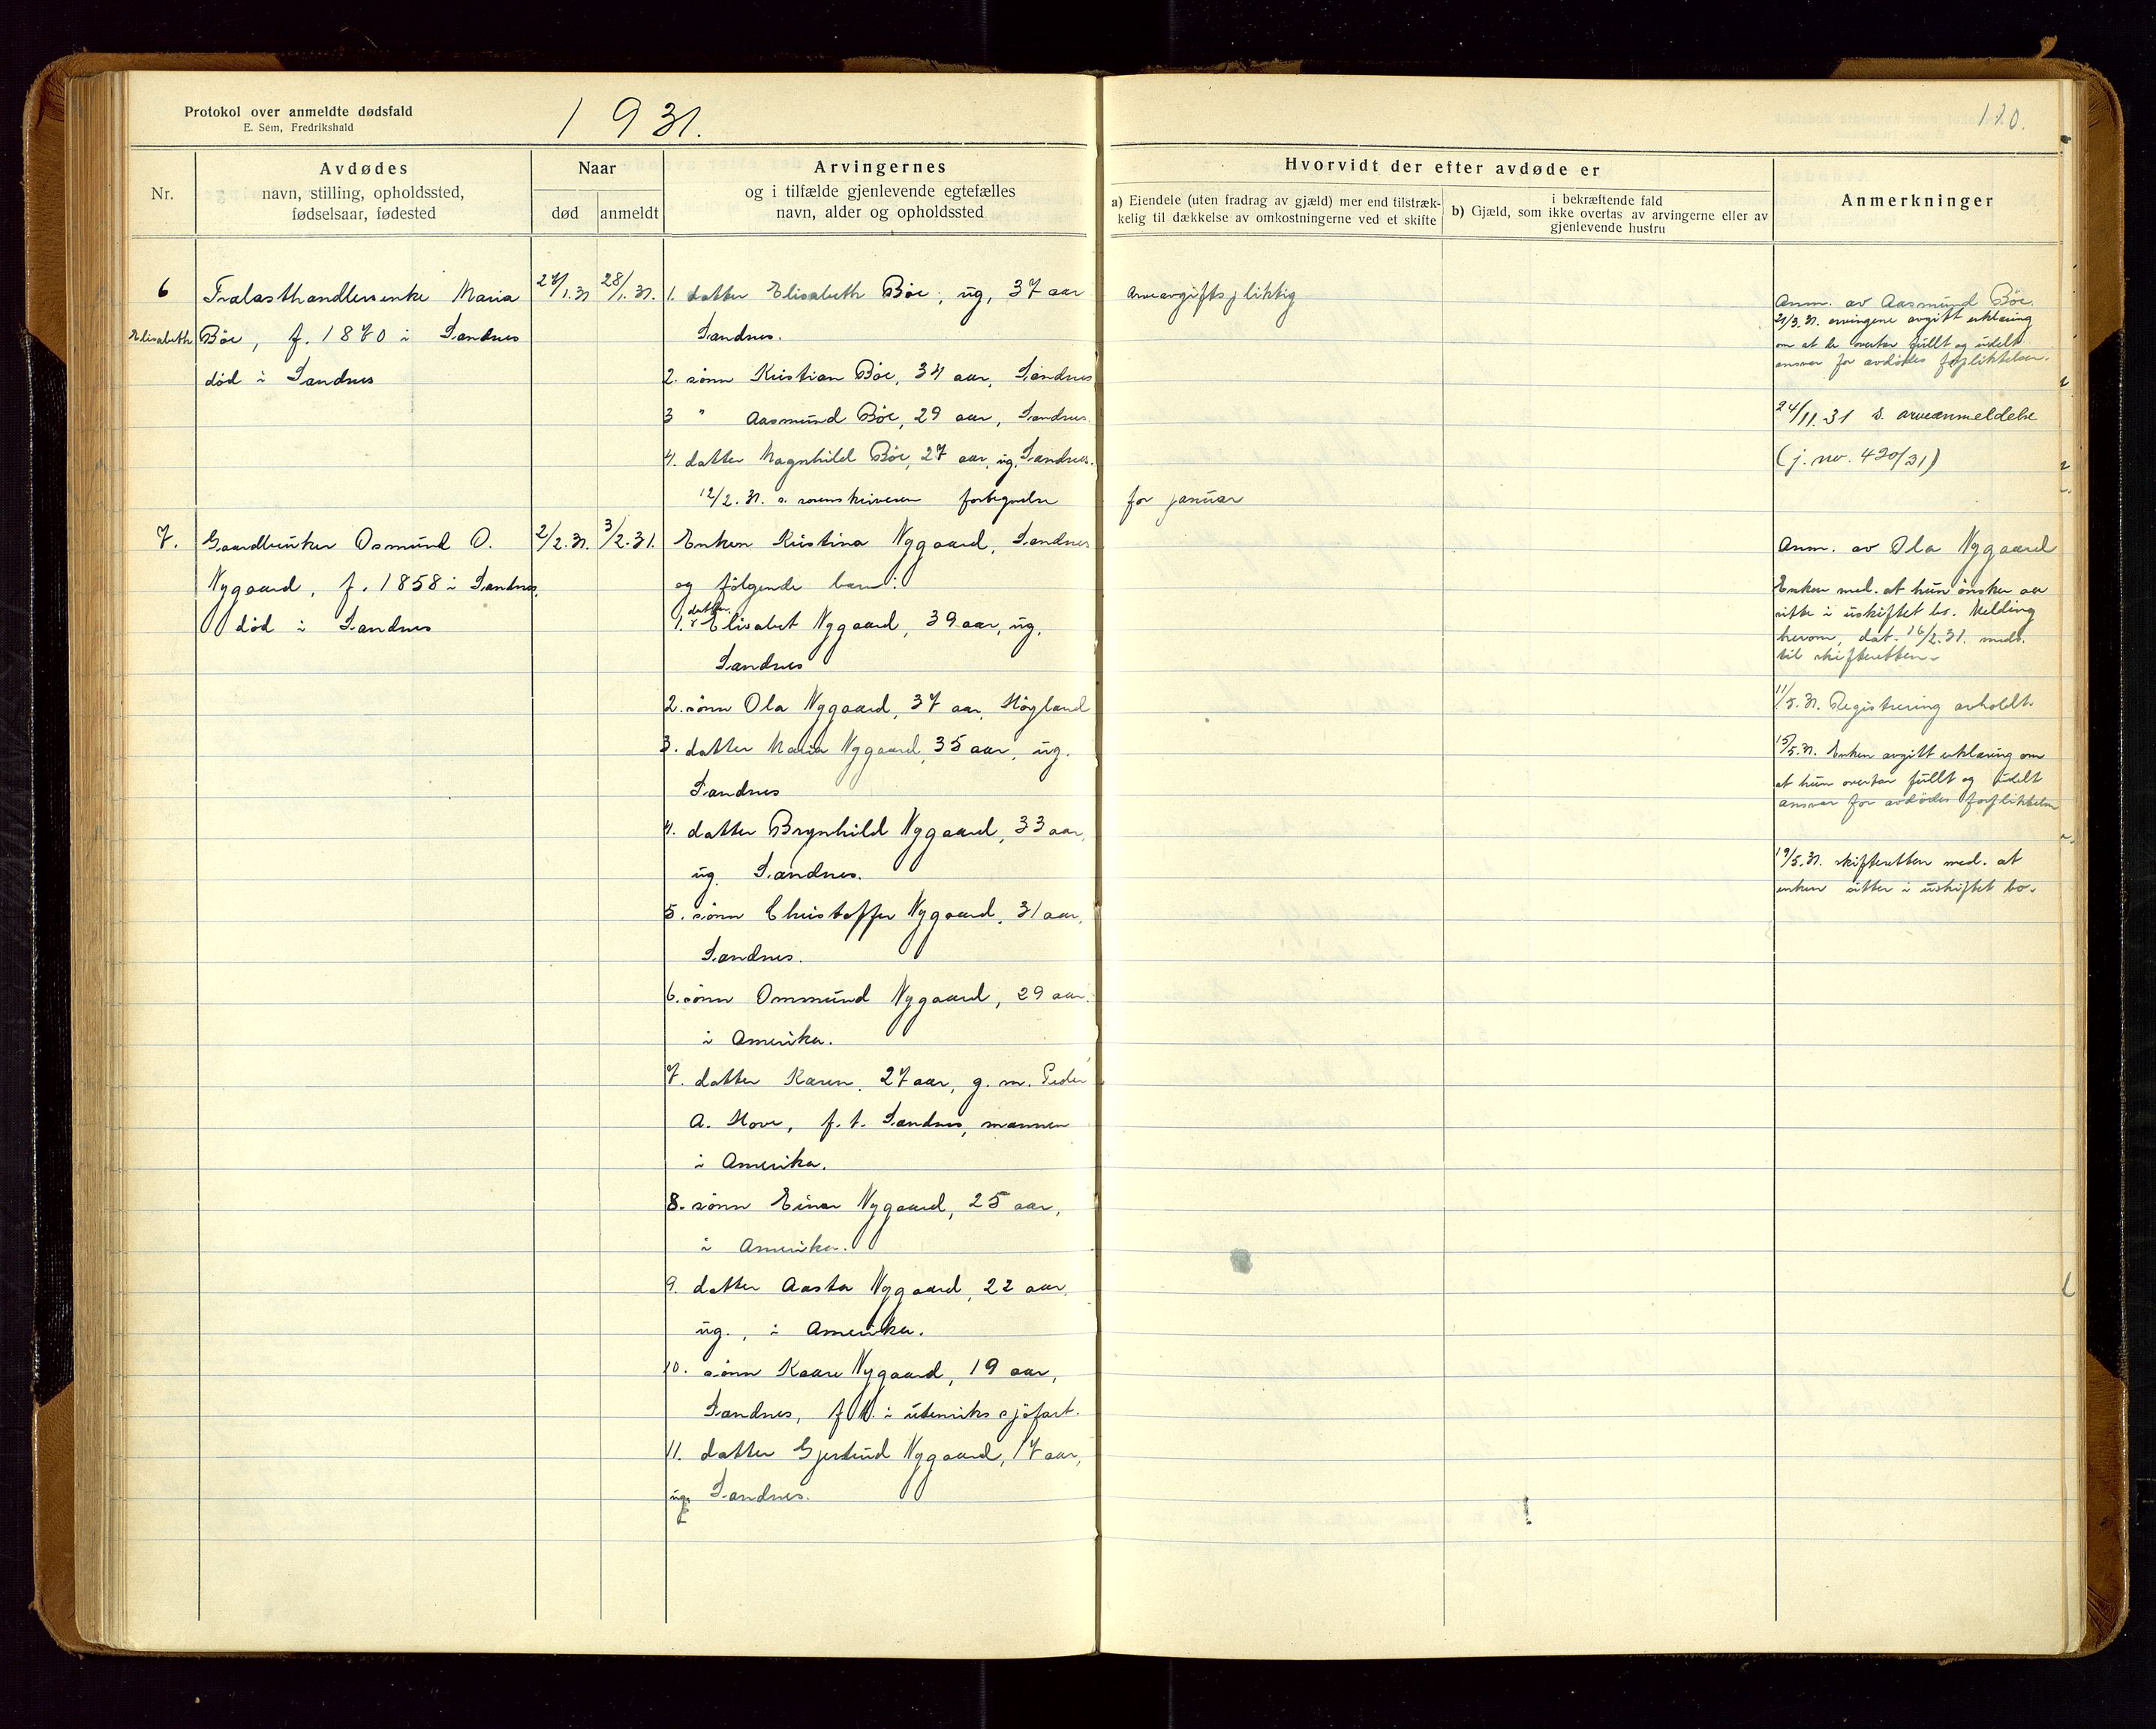 Protokol over anmeldte dødsfald
E. Sem, Fredrikshald
1931.
110.
Nr.
Avdødes
navn, stilling, opholdssted,
fødselsaar, fødested
Naar
død
anmeldt
Arvingernes
og i tilfælde gjenlevende egtefælles
navn, alder og opholdssted
Hvorvidt der efter avdøde er
a) Eiendele (uten fradrag av gjæld) mer end tilstræk-
kelig til dækkelse av omkostningerne ved et skifte
i bekræftende fald
b) Gjæld, som ikke overtas av arvingerne eller av
gjenlevende hustru
Anmerkninger
6
Trælasthandlerenke Maria
Elisabeth Böe, f. 1870 i Sandnes
död i Sandnes
27/1.31
28/1.31.
1. datter Elisabeth Böe, ug, 37 aar
Sandnes.
2. sönn Kristian Böe, 34 aar, Sandnes
3 " Aasmund Böe, 29 aar, Sandnes.
4. datter Magnhild Böe, 27 aar, ug, Sandnes.
12/2.31. s. sorenskriveren fortegnelse
for januar
arveavgiftspliktig
Anm. av Aasmund Böe.
21/3.31. arvingene avgitt erklæring
om at de overtar fullt og udelt
ansvar for avdödes forpliktelser.
24/11.31 s. arveanmeldelse
(j. no. 420/31)
7.
Gaardbruker Osmund O.
Nygaard, f. 1858 i Sandnes,
död i Sandnes
2/2.31.
3/2.31.
Enken Kristina Nygaard, Sandnes
og fölgende barn:
1. datter Elisabet Nygaard, 39 aar, ug,
Sandnes
2. sönn Ola Nygaard, 37 aar, Höyland
3. datter Maria Nygaard, 35 aar, ug.
Sandnes
4. datter Brynhild Nygaard, 33 aar,
ug. Sandnes.
5. sönn Christoffer Nygaard, 31 aar,
Sandnes.
6. sönn Ommund Nygaard, 29 aar.
i Amerika.
7. datter Karen, 27 aar, g. m. Peder
A. Hove, f. t. Sandnes, mannen
i Amerika.
8. sönn Einar Nygaard, 25 aar,
i Amerika.
9. datter Aasta Nygaard, 22 aar,
ug., i Amerika.
10. sönn Kaare Nygaard, 19 aar,
Sandnes, f. t. i utenriks sjöfart.
11. datter Gjertrud Nygaard, 17 aar,
ug, Sandnes.
Anm. av Ola Nygaard
Enken med. at hun önsker aa
sitte i uskiftet bo. Melding
herom, dat. 16/2.31. meds.
til skifteretten.
11/5.31. Registrering avholdt.
15/5.31. Enken avgitt erklæring om
at hun overtar fullt og udelt
ansvar for avdödes forpliktelser
19/5.31. skifteretten med. at
enken sitter i uskiftet bo.